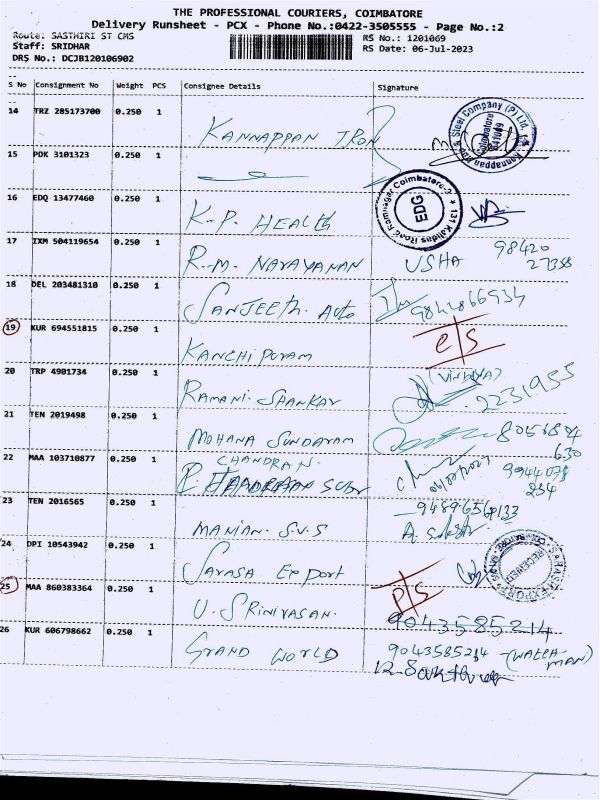 THE PROFESSIONAL COURIERS, COIMBATORE
Delivery Runsheet - PCX - Phone No.:0422-3505555 - Page No.:2
Route: SASTHIRI ST CMS RS No.: 1201069
Staff: SRIDHAR RS Date: 06-Jul-2023
DRS No.: DCJB120106902
S No Consignment No Weight PCS Consignee Details Signature
14 TRZ 285173700 0.250 1
KANNAPPAN IRON
& Steel Company (P) Ltd. Kannappan
Coimbatore
641009
15 PDK 3101323 0.250 1
16 EDQ 13477460 0.250 1
K.P. HEALTH
EDG
* 131 Kalidas Road Ramnagar Coimbatore-9
17 IXM 504119654 0.250 1
R.M. NARAYANAN USHA 98420
27358
18 DEL 203481310 0.250 1
SANJEETH. AUTO 9842866934
19 KUR 694551815 0.250 1
KANCHIPURAM C/S
20 TRP 4901734 0.250 1
RAMANI. SHANKAR 2231955
21 TEN 2019498 0.250 1
MOHANA SUNDARAM
630
22 MAA 103710877 0.250 1
CHANDRAN.
234
23 TEN 2016565 0.250 1
MANIAN. S.V.S
24 DPI 10543942 0.250 1
SARASA EXPORT
RECEIVED
25 MAA 860383364 0.250 1
V. SRINIVASAN. P/S
9043585214
26 KUR 606798662 0.250 1
GRAND WORLD 9043585214 (WATCH
MAN)